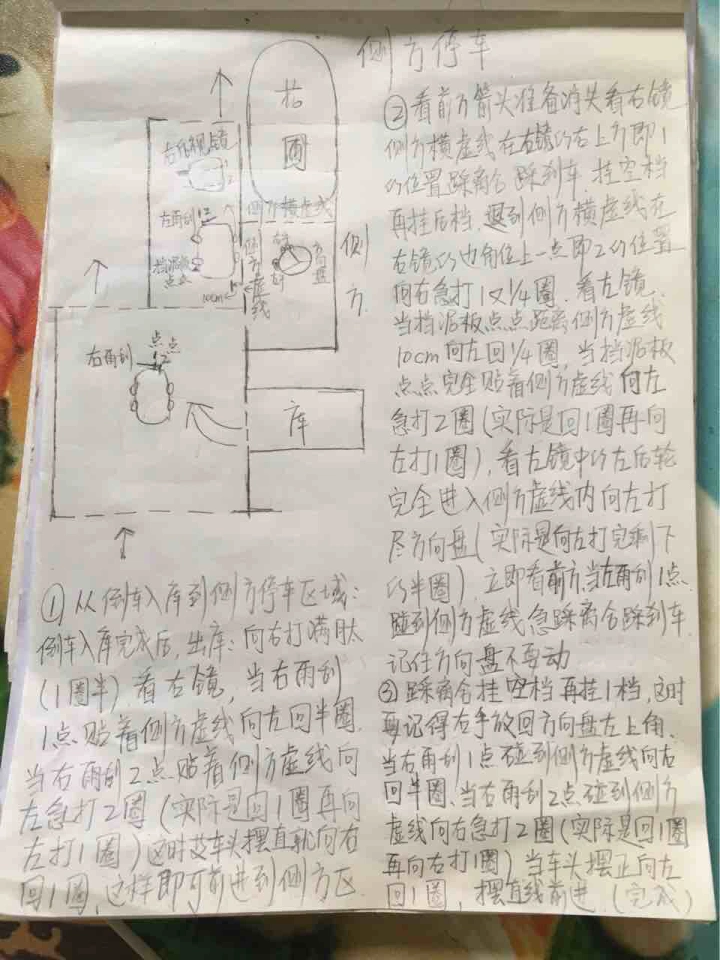 侧方停车
右后视镜
1
2
左雨刮
1点
挡泥板
点点
10cm
侧方横虚线
侧方虚线
方向盘
侧方
右雨刮
点点
1 2
库
①从倒车入库到侧方停车区域:
倒车入库完成后,出库:向右打满舦
(1圈半)看右镜,当右雨刮
1点贴着侧方虚线向左回半圈.
当右雨刮2点贴着侧方虚线向
左急打2圈(实际是回1圈再向
左打1圈)这时
车头摆直就向右
回1圈,这样即可前进到侧方区.
②看前方箭头准备消失看右镜
侧方横虚线在右镜的右上方即1
的位置踩离合踩刹车.挂空档
再挂后档.退到侧方横虚线在
右镜的
角位上一点即2的位置
向右急打1又1/4圈.看左镜.
当挡泥板点点距离侧方虚线
10cm向左回1/4圈,当挡泥板
点点完全贴着侧方虚线向左
急打2圈(实际是回1圈再向
左打1圈),看左镜中的左后轮
完全进入侧方虚线内向左打
尽方向盘(实际是向左打完剩下
的半圈).立即看前方,当左雨刮1点
碰到侧方虚线急踩离合踩刹车
记住方向盘不要动
③踩离合挂空档再挂1档,这时
要记得左手放回方向盘左上角.
当右雨刮1点碰到侧方虚线向右
回半圈、当右雨刮2点碰到侧方
虚线向右急打2圈(实际是回1圈
再向右打1圈)当车头摆正向左
回1圈,摆直线前进.(完成)